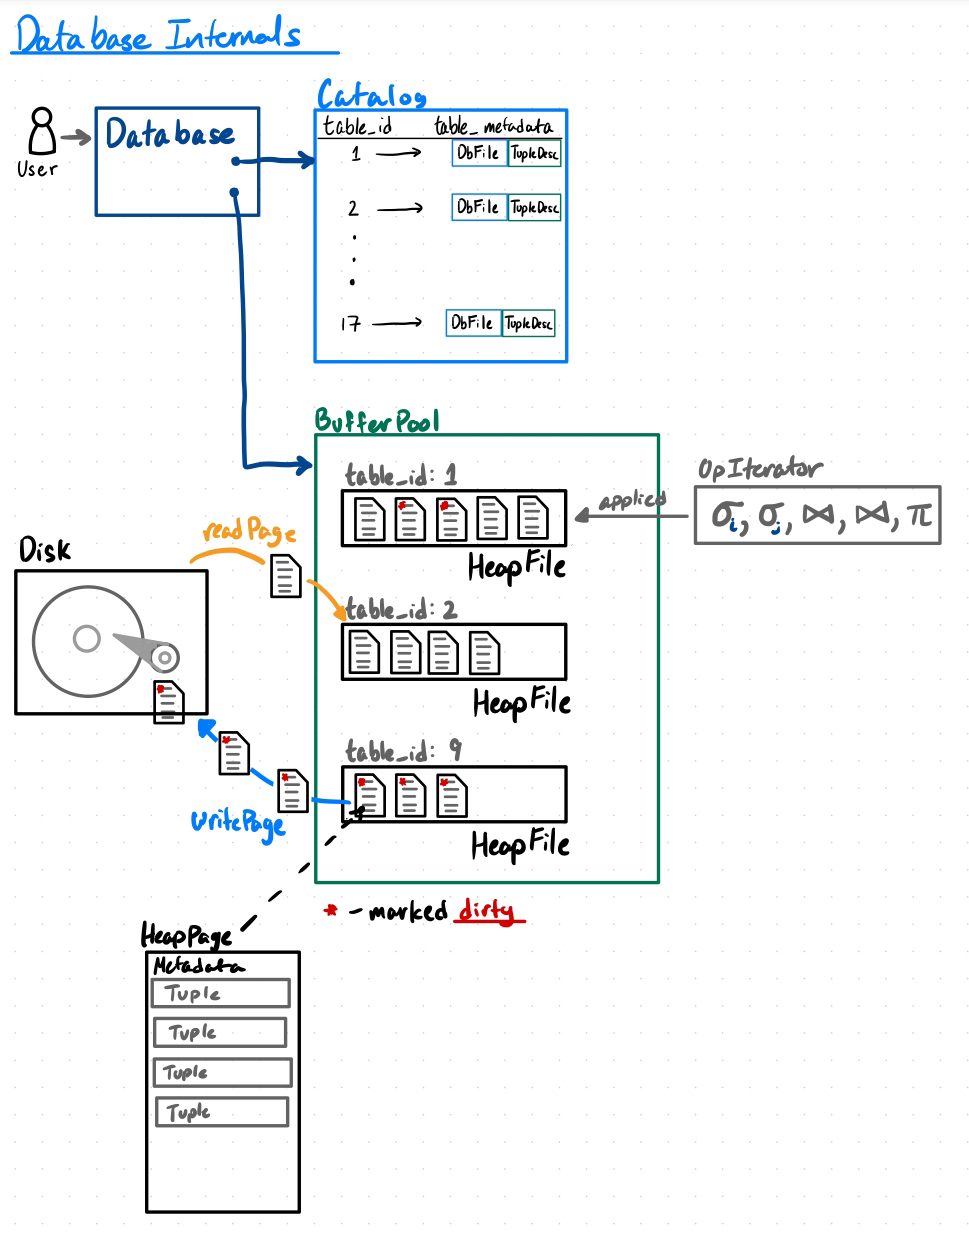 Database Internals
User
Database
Catalog
table_id table_metadata
1 DbFile TupleDesc
2 DbFile TupleDesc
17 DbFile TupleDesc
BufferPool
table_id: 1
HeapFile
applied
OpIterator
σi, σj, ⋈, ⋈, π
readPage
Disk
table_id: 2
HeapFile
table_id: 9
HeapFile
writePage
* - marked dirty
HeapPage
Metadata
Tuple
Tuple
Tuple
Tuple